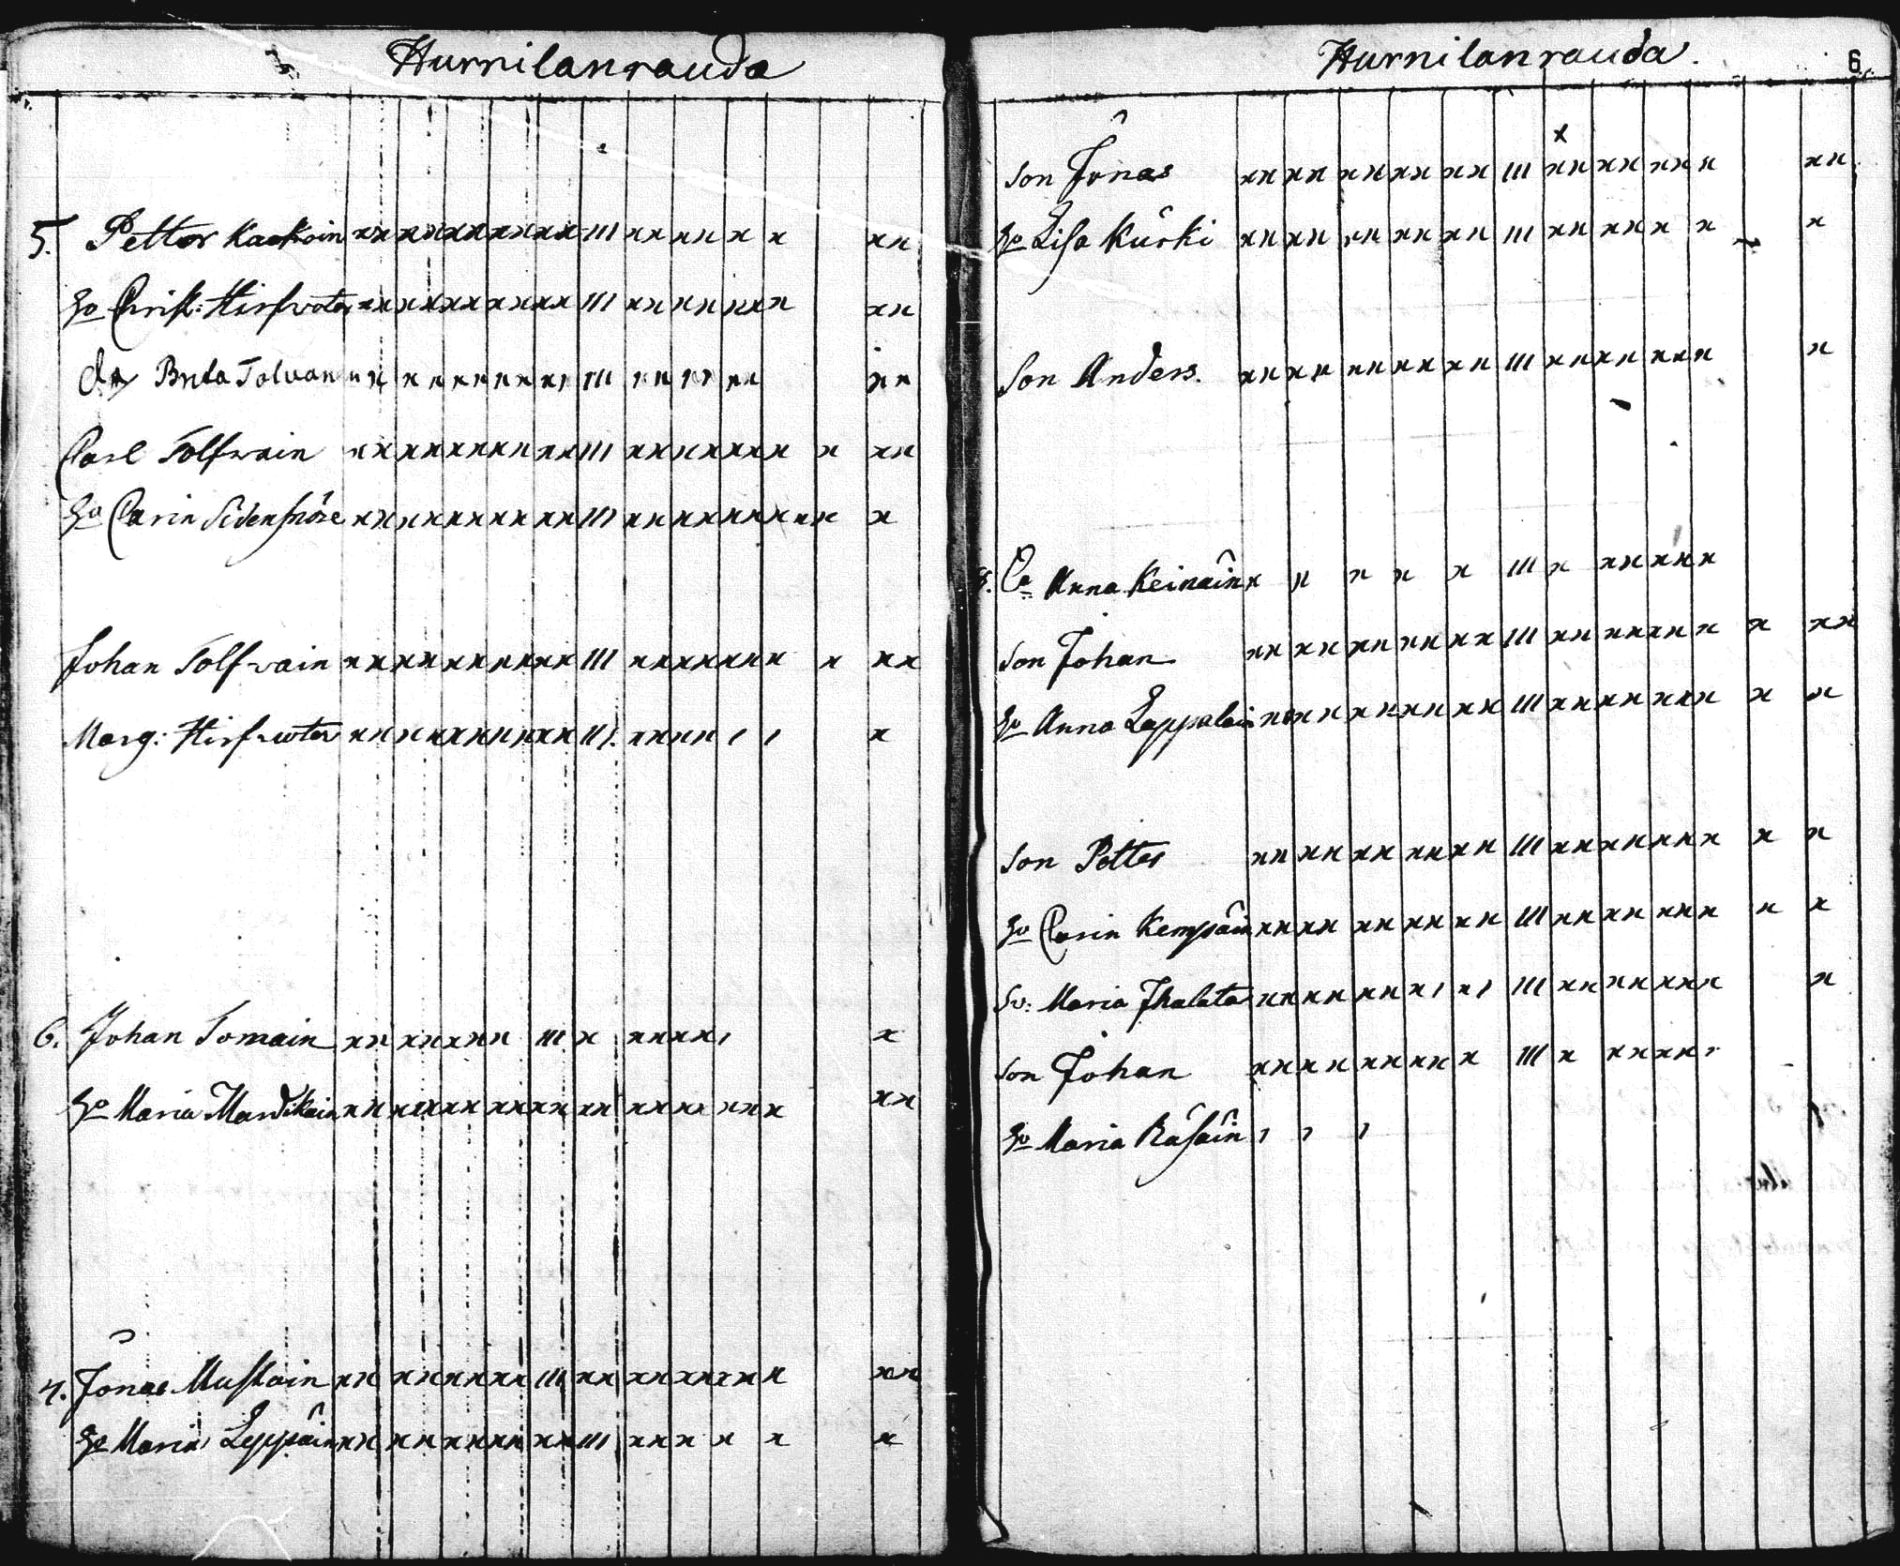 Hurnilanrauda
5. Petter Kackoin xx xx xx xx xx III xx xx x x xx
Ho Christ: Hirfwoter xx xx xx xx xx III xx xx xx x xx
Brita Tolvan xx xx xx xx xx III xx xx xx xx
Carl Tolfwain xx xx xx xx xx III xx xx xx x x xx
Ho Carin Sidensnöre xx xx xx xx xx III xx xx xx x xx x
Johan Tolfwain xx xx xx xx xx III xx xx xx x x xx
Marg: Hirfwoter xx xx xx xx xx III xx xx ı ı x
6. Johan Tomain xx xx xx x III x xx xx ı x
Ho Maria Mardikain xx xx xx xx xx xx xx xx xx x xx
7. Jonas Mustain xx xx xx xx III xx xx xx xx xx
Ho Maria Leppäin xx xx xx xx xx III xx x x x x
Hurnilanrauda. 6
x
Son Jonas xx xx xx xx xx III xx xx xx x xx
Ho Lisa Kurki xx xx xx xx xx III xx xx x x x
Son Anders. xx xx xx xx xx III xx xx xx x x
8. Anna Keinäin x x x x x III x xx xx x
Son Johan xx xx xx xx xx III xx xx xx x x xx
Ho Anna Lappalain xx xx xx xx xx III xx xx xx x x x
Son Petter xx xx xx xx xx III xx xx xx x x x
Ho Carin Kempäin xx xx xx xx xx III xx xx xx x x x
Sv: Maria Ihalata xx xx xx xı xı III xx xx xx x x
Son Johan xx xx xx xx x III x xx xx
Ho Maria Räsäin ı ı ı